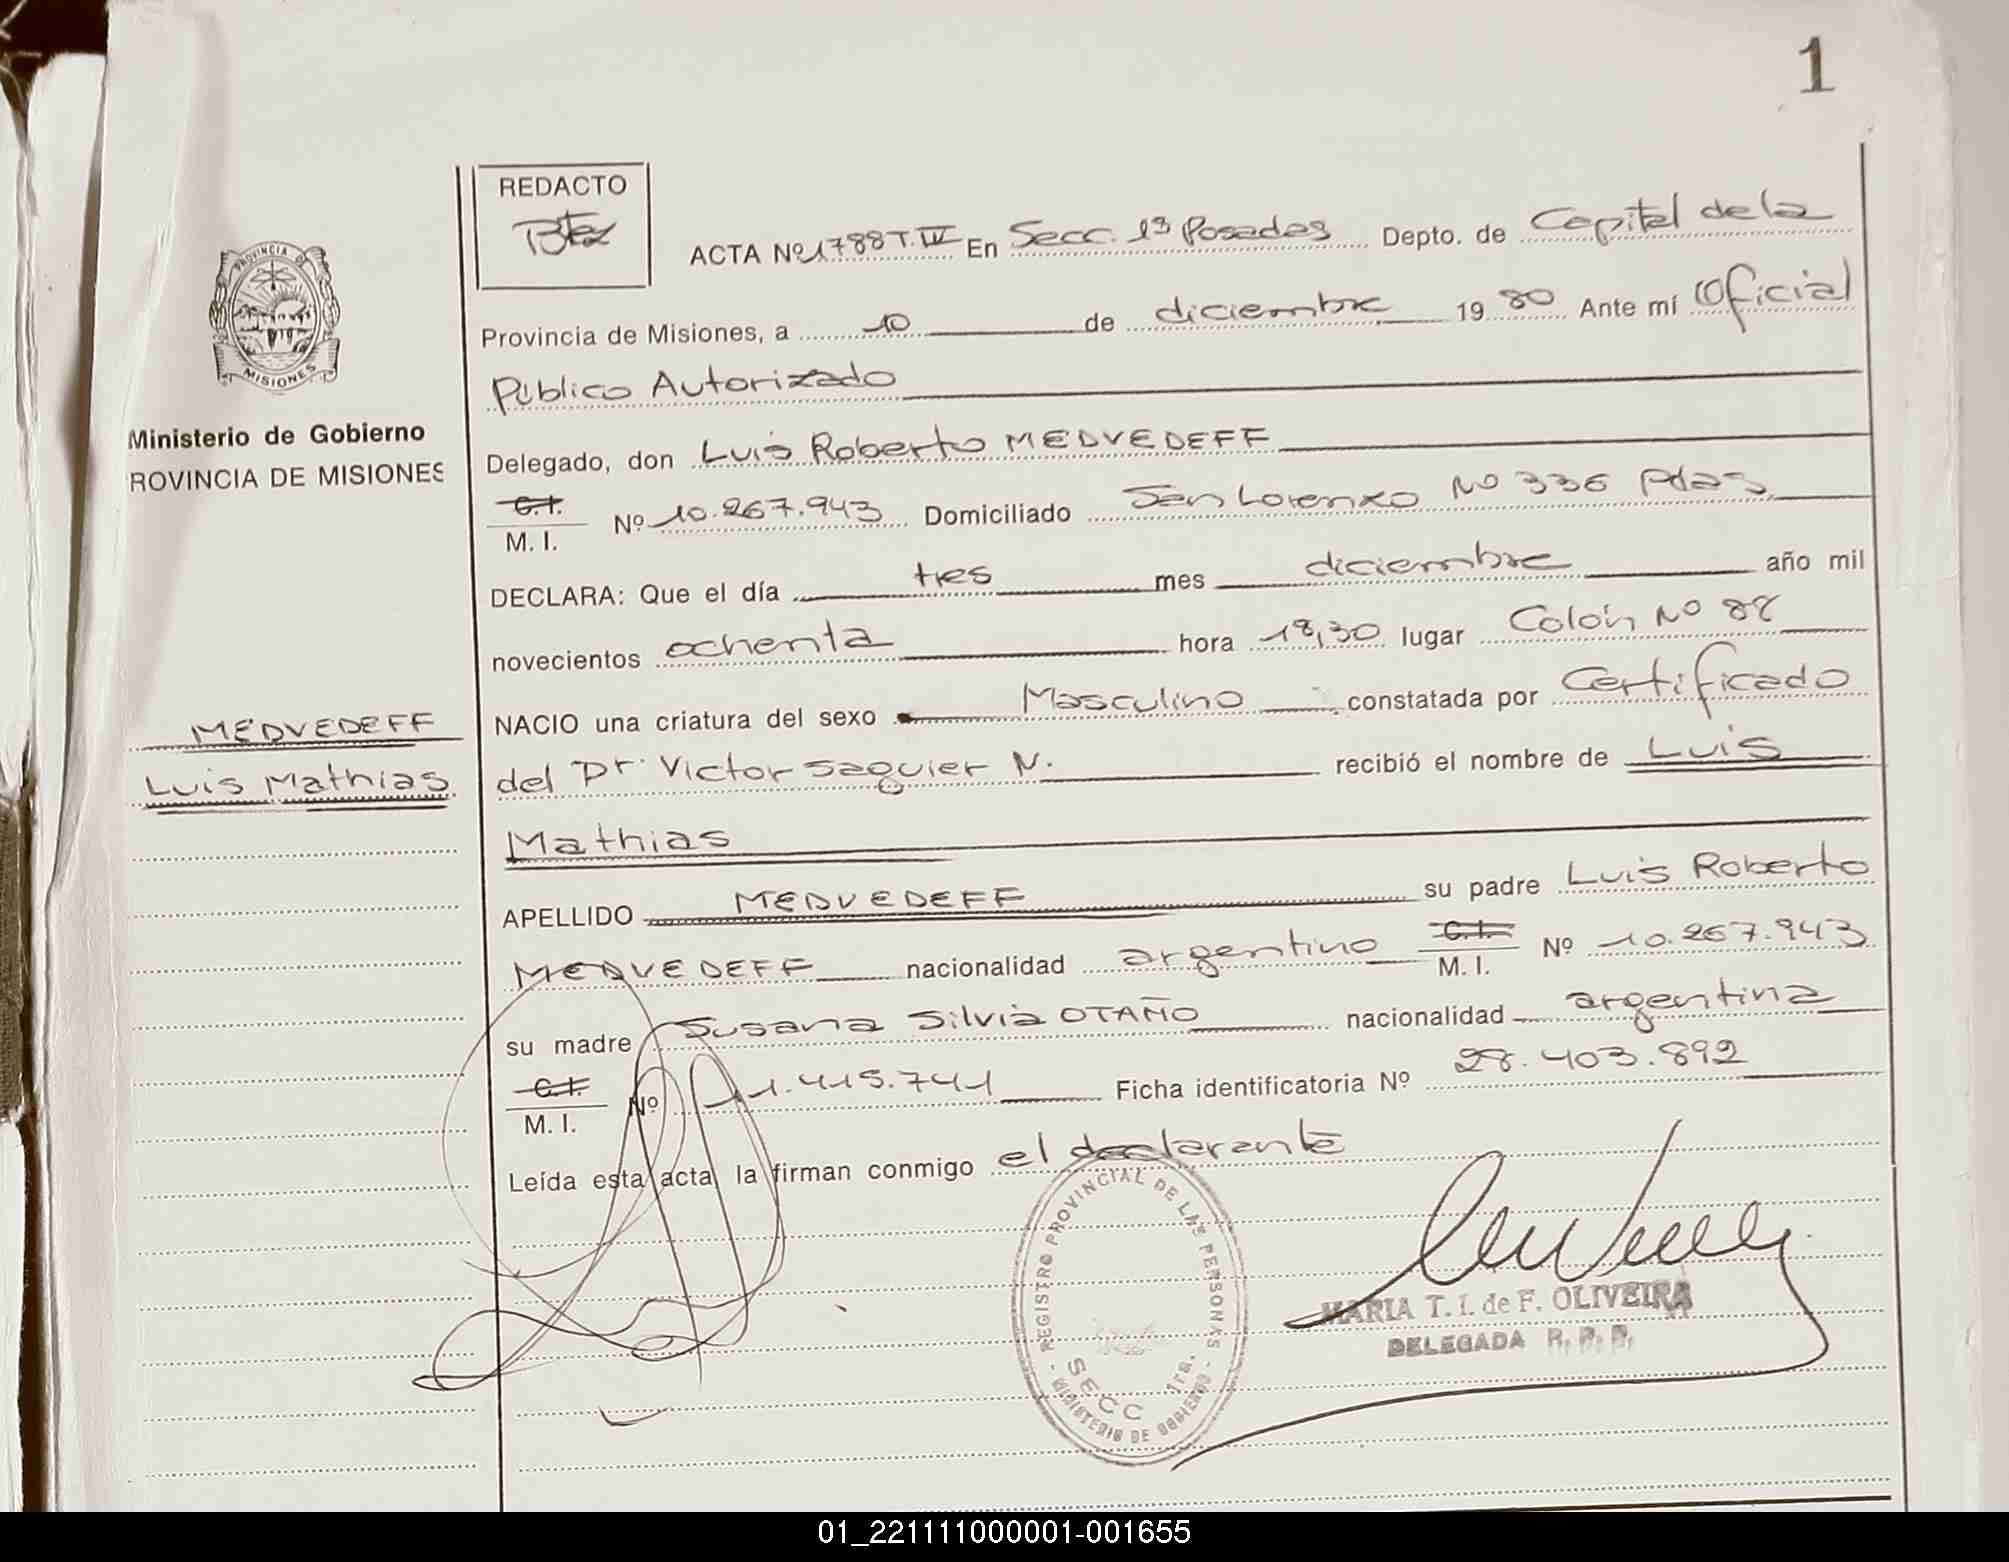 1
REDACTO
ACTA Nº 1788 T. IV En Secc. 1ª Posadas Depto. de Capital de la
Provincia de Misiones, a 10 de diciembre 1980 Ante mí Oficial
Público Autorizado
Delegado, don Luis Roberto MEDVEDEFF
C.I.
M. I. Nº 10.267.943 Domiciliado San Lorenzo Nº 336 Pdas
DECLARA: Que el día tres mes diciembre año mil
novecientos ochenta hora 18,30 lugar Colón Nº 88
NACIO una criatura del sexo Masculino constatada por Certificado
del Dr. Victor Saguier N. recibió el nombre de Luis
Mathias
APELLIDO MEDVEDEFF su padre Luis Roberto
MEDVEDEFF nacionalidad argentino C.I. M. I. Nº 10.267.943
su madre Susana Silvia OTAÑO nacionalidad argentina
C.I.
M. I. Nº 11.415.741 Ficha identificatoria Nº 28.403.892
Leída esta acta la firman conmigo el declarante
PROVINCIA DE
MISIONES
Ministerio de Gobierno
ROVINCIA DE MISIONES
MEDVEDEFF
Luis Mathias
REGISTRO PROVINCIAL DE LAS PERSONAS
SECC 1ra.
MINISTERIO DE GOBIERNO
MARIA T. I. de F. OLIVEIRA
DELEGADA R. P. P.
01_221111000001-001655